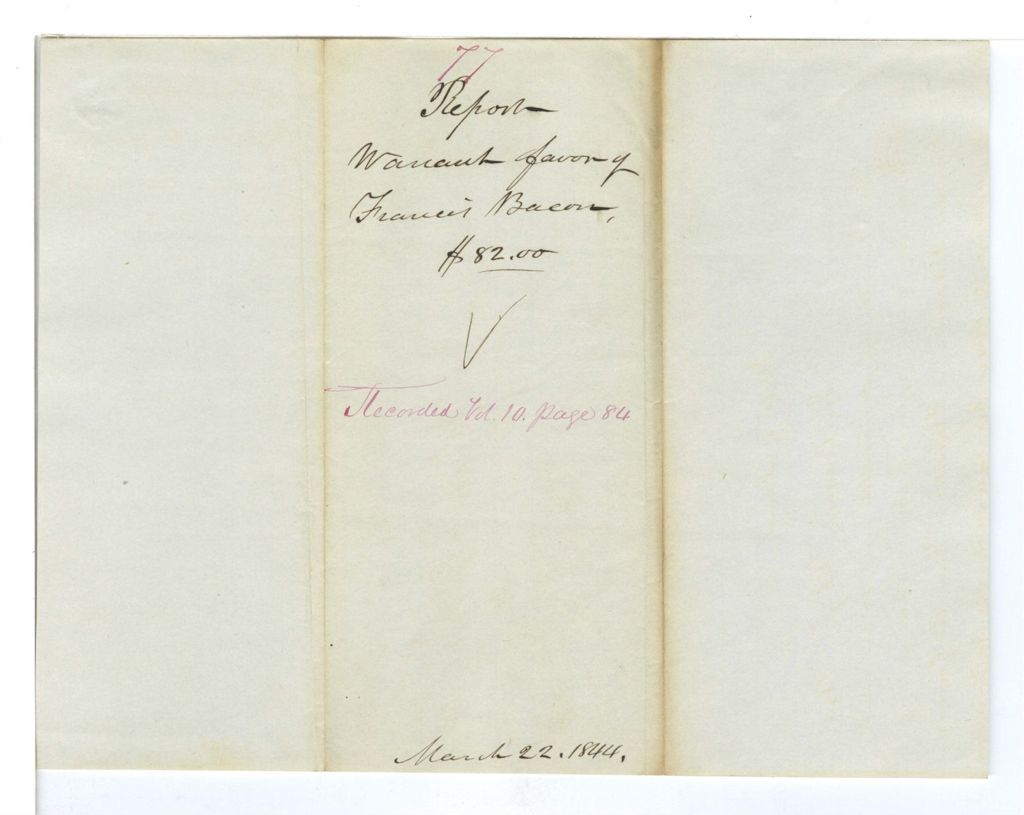 77
Report
Warrant favor of
Francis Bacon,
$82.00
Recorded Vol. 10. page 84
March 22. 1844.